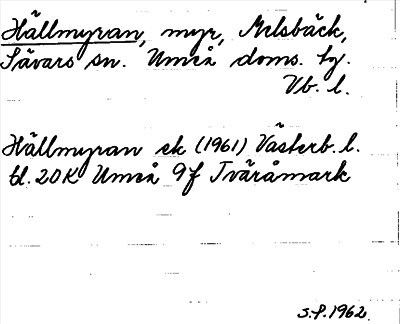 Hällmyran, myr, Melsbäck,
Sävars sn. Umeå doms. tg.
Vb. l.
Hällmyran ek (1961) Västerb. l.
bl. 20K Umeå 9f Tväråmark
S.P. 1962